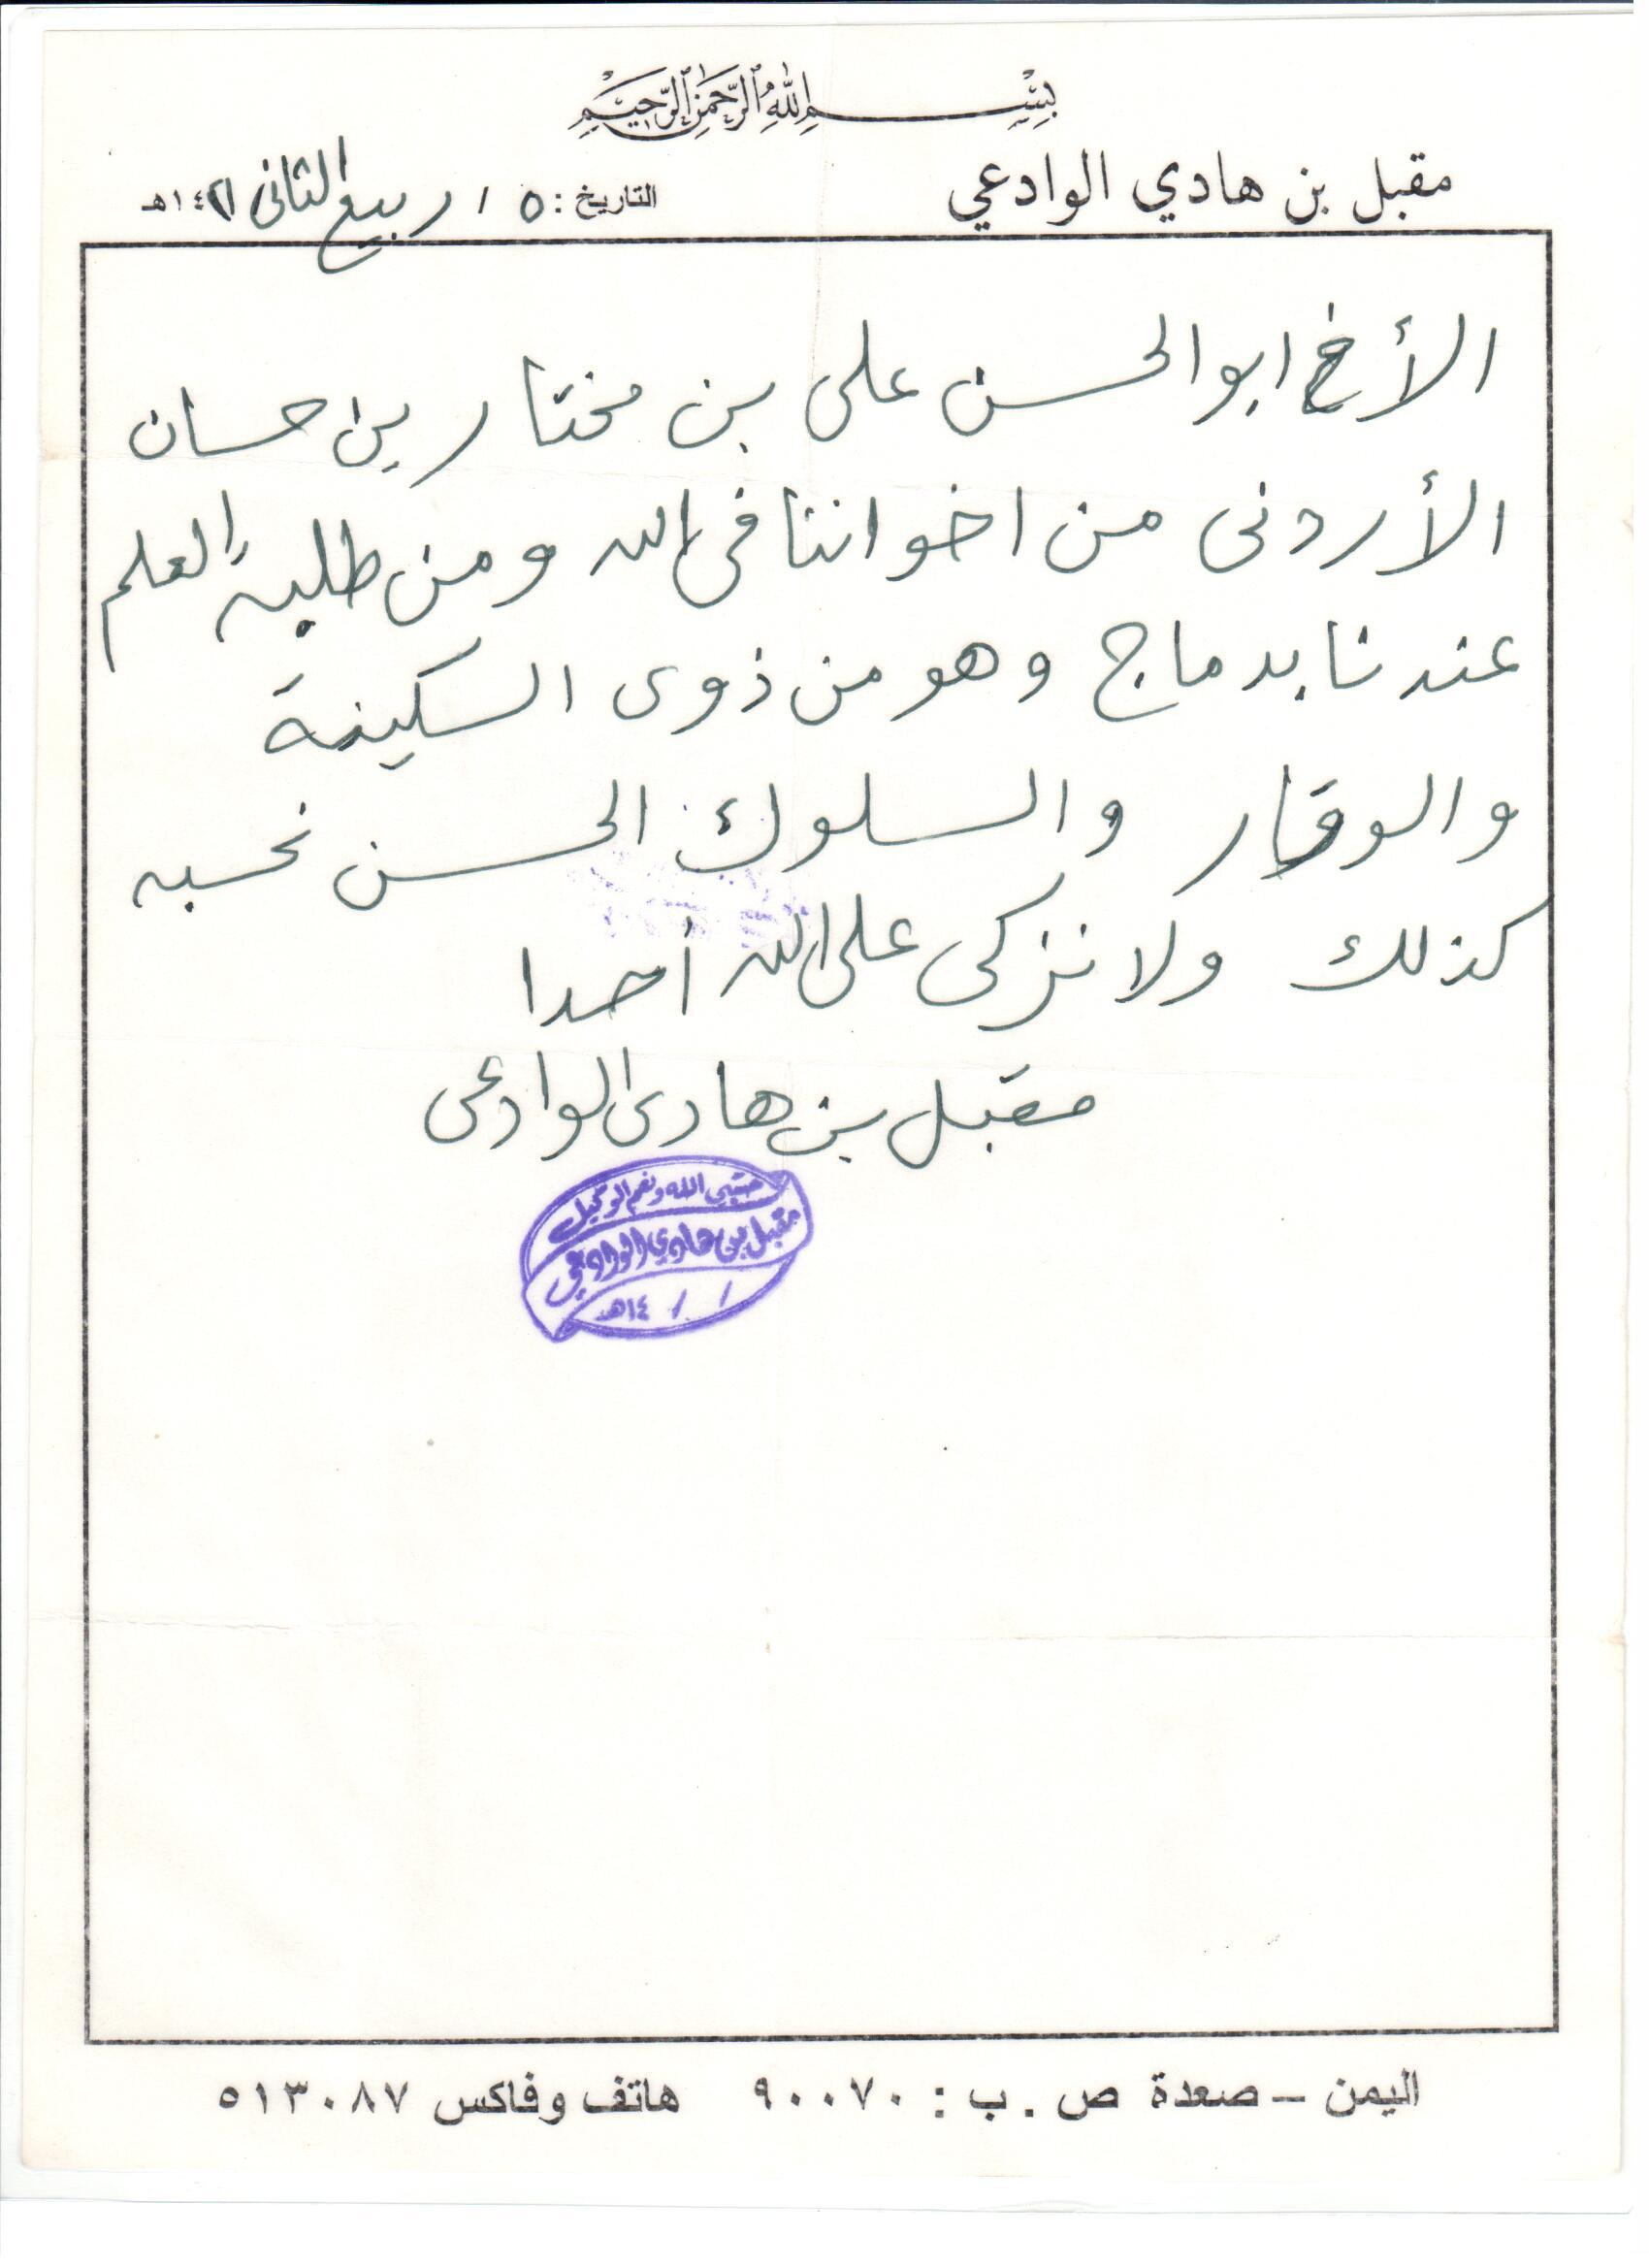 بِسْمِ اللهِ الرَّحْمَنِ الرَّحِيمِ
مقبل بن هادي الوادعي
التاريخ : ٥ / ربيع الثاني ١٤٢١هـ
الأخ ابو الحسن على بن مختار بن حسان
الأردنى من اخواننا فى الله ومن طلبة العلم
عندنا بدماج وهو من ذوى السكينة
والوقار والسلوك الحسن نحسبه
كذلك ولا نزكى على الله أحدا
مقبل بن هادى الوادعى
حسبي الله ونعم الوكيل
مقبل بن هادي الوادعي
/ / ١٤هـ
اليمن – صعدة ص . ب : ٩٠٠٧٠ هاتف وفاكس ٥١٣٠٨٧